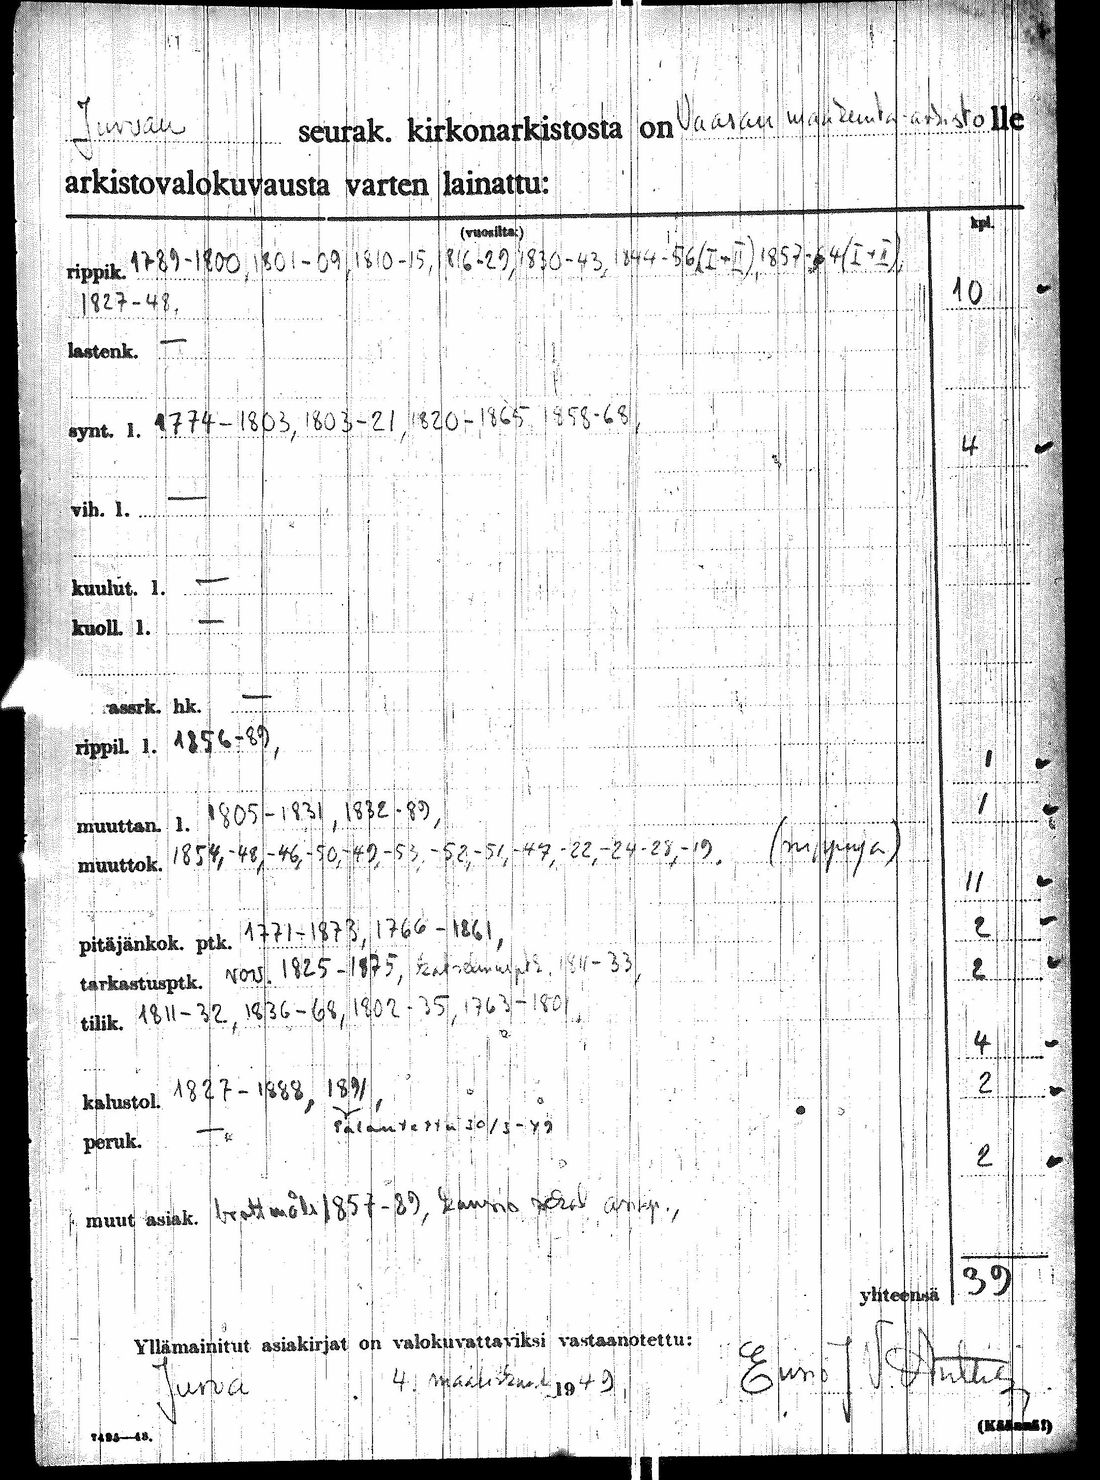 Jurvan seurak. kirkonarkistosta on Vaasan maakunta-arkistolle
arkistovalokuvausta varten lainattu:
(vuosilta:) kpl.
rippik. 1789-1800, 1801-09, 1810-15, 1816-29, 1830-43, 1844-56 (I+II), 1857-64 (I+II),
1827-48. 10
lastenk. —
synt. l. 1774-1803, 1803-21, 1820-1865 1858-68, 4
vih. l. —
kuulut. l. —
kuoll. l. —
assrk. hk. —
rippil. l. 1856-89, 1
muuttan. l. 1805-1831, 1832-89, 1
muuttok. 1854, -48, -46, -50, -49, -53, -52, -51, -47, -22, -24-28, -19. (nippuja) 11
pitäjänkok. ptk. 1771-1873, 1766-1861, 2
tarkastusptk. rov. 1825-1875, 1811-33, 2
tilik. 1811-32, 1836-68, 1802-35, 1763-1801, 4
kalustol. 1827-1888, 1891, 2
Palautettu 30/3-49
peruk. —
2
muut asiak. 1857-89, kansio sekal.
yhteensä 39
Yllämainitut asiakirjat on valokuvattaviksi vastaanotettu:
Jurva 4. maalisk. 1949
(Käännä!)
7495—48.